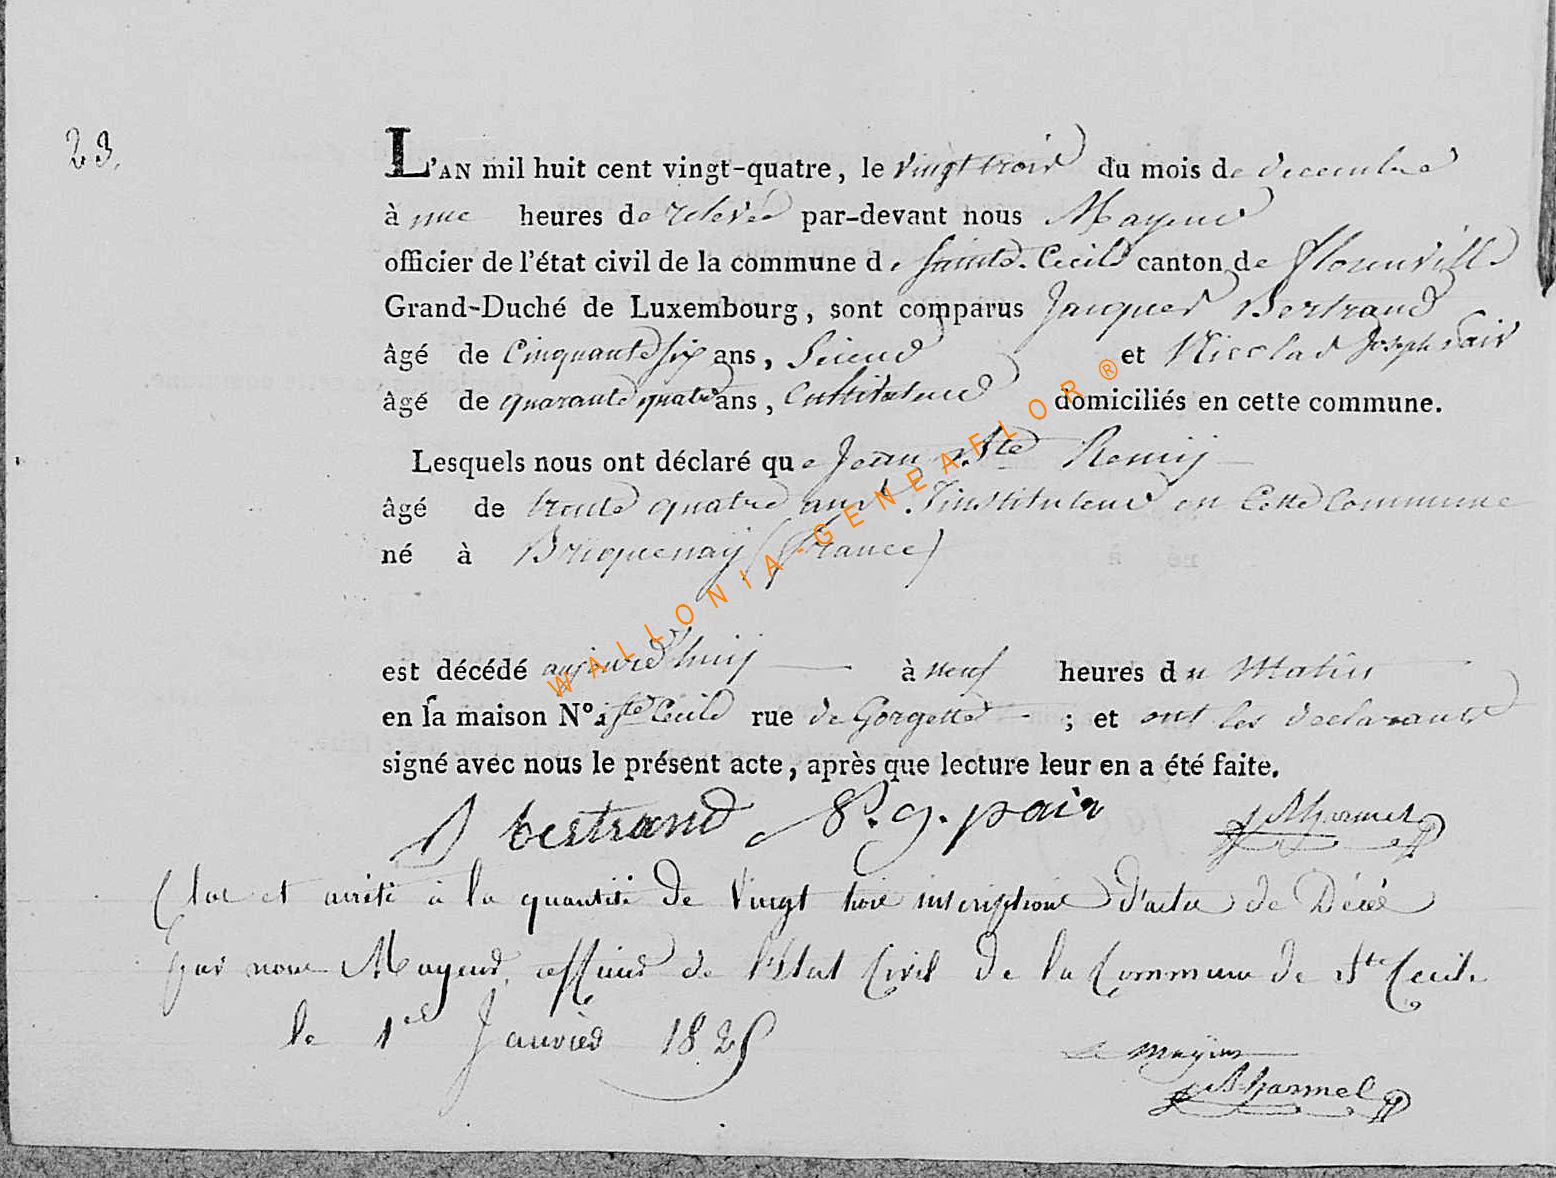 23.
L'AN mil huit cent vingt-quatre, le vingt trois du mois de decembre
à une heures de relevée par-devant nous Mayeur
officier de l'état civil de la commune de Sainte-Cecile canton de florenville
Grand-Duché de Luxembourg, sont comparus Jacques Bertrand
âgé de Cinquante six ans, et Nicolas Joseph pair
âgé de quarante quatre ans, Cultivateur domiciliés en cette commune.
Lesquels nous ont déclaré que Jean Bte Remij
âgé de trente quatre ans Instituteur en Cette Commune
né à Briquenaij (france)
est décédé aujourd'huij à neuf heures du Matin
en sa maison N° à Ste Cecile rue de Gorgette ; et ont les declarants
signé avec nous le présent acte, après que lecture leur en a été faite.
J bertrand N. j. pair J B harmel
Clos et arrêté à la quantité de Vingt trois inscriptions d'actes de Décès
par nous Mayeur, officier de l'Etat Civil de la Commune de Ste Cecile
le 1er Janvier 1825
Le Mayeur
J B harmel
WALLONIA-GENEAFLOR®